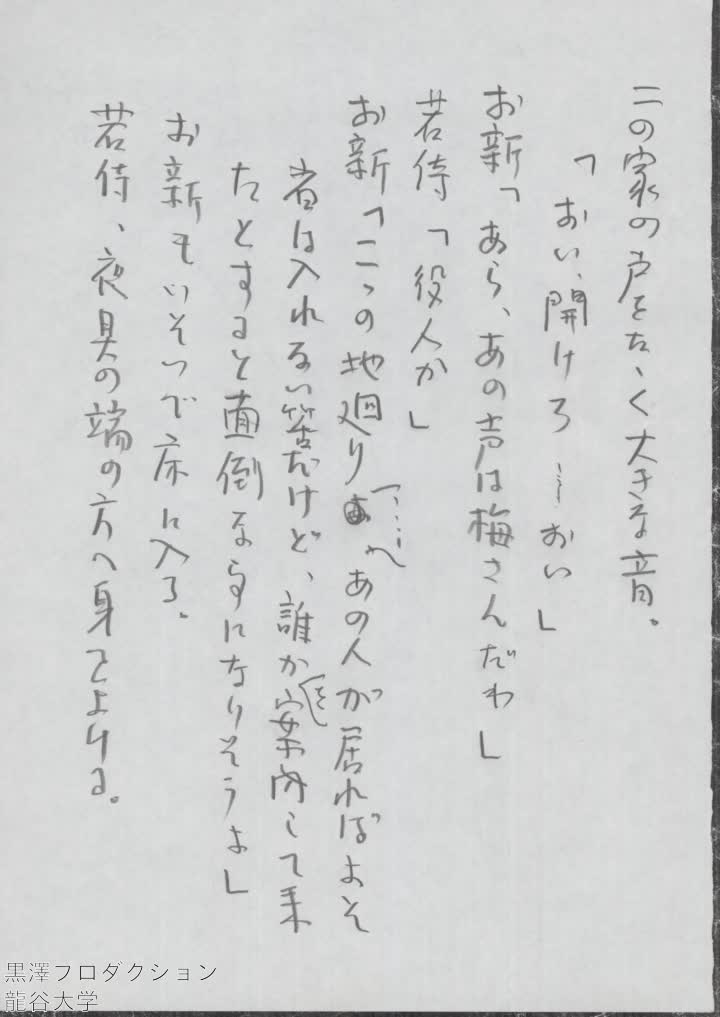 この家の戸をたゝく大きな音。
「おい、開けろ……おい」
お新「あら、あの声は梅さんだわ」
若侍「役人か」
お新「こゝの地廻りよ……あの人が居ればよそ
者は入れない筈だけど、誰かを案内して来
たとすると面倒な事になりそうよ」
お新もいそいで床に入る。
若侍、夜具の端の方へ身をよける。
黒澤プロダクション
龍谷大学